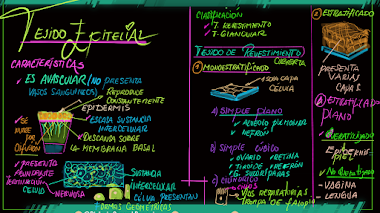 TEJIDO EPITELIAL
CARACTERÍSTICAS
✓ ES AVASCULAR (NO PRESENTA
VASOS SANGUÍNEOS)
✓ REPRODUCE
CONSTANTEMENTE
EPIDERMIS
✓ ESCASA SUSTANCIA
INTERCELULAR
✓ SE
NUTRE
POR
DIFUSIÓN
✓ DESCANSA SOBRE
LA MEMBRANA BASAL
✓ PRESENTA
ABUNDANTE
TERMINACIÓN
NERVIOSA
CÉLULA
SUSTANCIA
INTERCELULAR
CÉLULA PRESENTAN
FORMAS GEOMÉTRICAS
CLASIFICACIÓN
✓ T. REVESTIMIENTO
✓ T. GLANDULAR
TEJIDO DE REVESTIMIENTO
CUBIERTA
1 MONOESTRATIFICADO
SOLA CAPA
CÉLULA
a) SIMPLE PLANO
✓ ALVÉOLO PULMONAR
✓ NEFRÓN
b) SIMPLE CÚBICO
✓ OVARIO ✓ RETINA
✓ TIROIDE ✓ NEFRÓN
c) CILÍNDRICO
VÍAS RESPIRATORIAS
TROMPA DE FALOPIO
2 ESTRATIFICADO
PRESENTA
VARIAS
CAPAS
ESTRATIFICADO
PLANO
QUERATINIZADO
EPIDERMIS
NO QUERATINIZADO
- VAGINA
- LENGUA